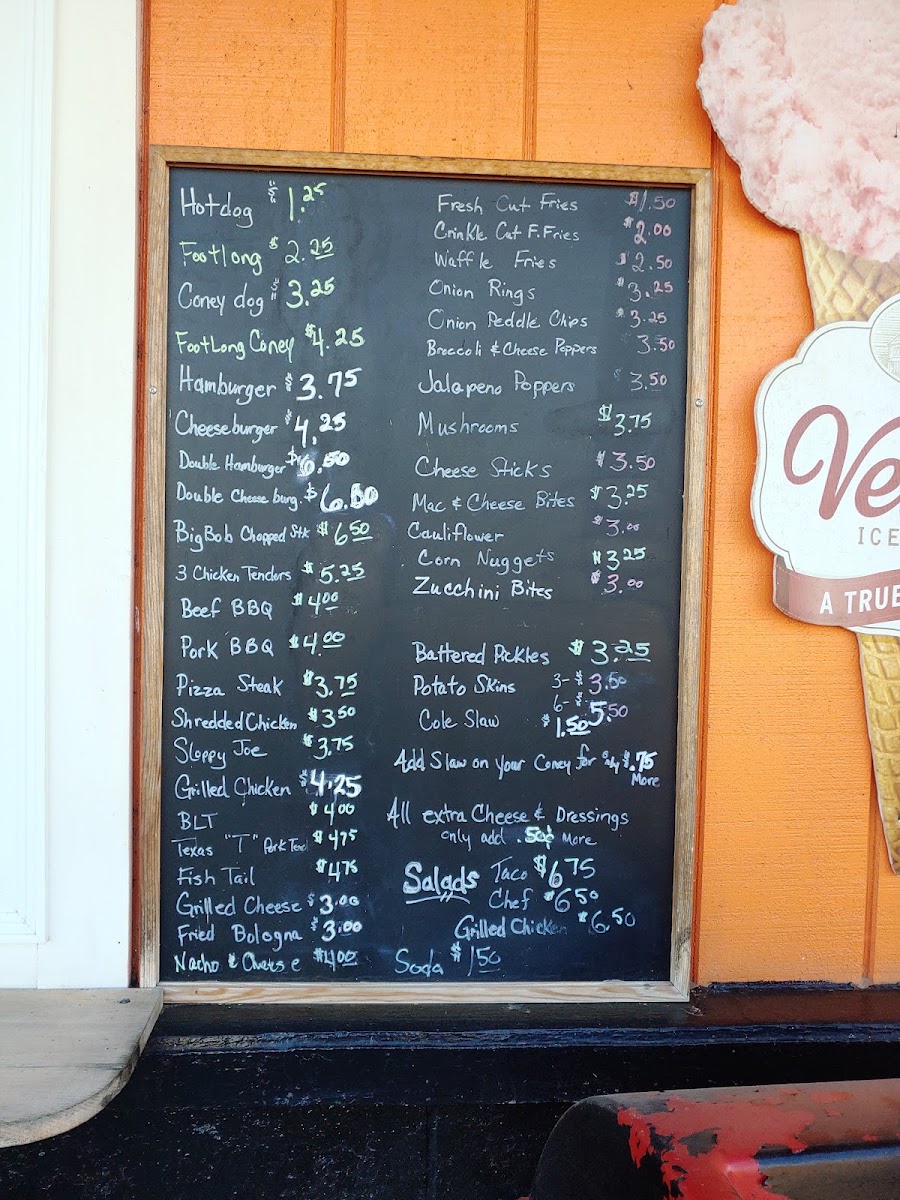 Hotdog $1.25
Footlong $2.25
Coney dog $3.25
FootLong Coney $4.25
Hamburger $3.75
Cheeseburger $4.25
Double Hamburger $6.50
Double Cheese burg. $6.80
BigBob Chopped Stk $6.50
3 Chicken Tendors $5.25
Beef BBQ $4.00
Pork BBQ $4.00
Pizza Steak $3.75
Shredded Chicken $3.50
Sloppy Joe $3.75
Grilled Chicken $4.25
BLT $4.00
Texas "T" Pork Tend $4.75
Fish Tail $4.75
Grilled Cheese $3.00
Fried Bologna $3.00
Nacho & Cheese $4.00
Fresh Cut Fries $1.50
Crinkle Cut F.Fries $2.00
Waffle Fries $2.50
Onion Rings $3.25
Onion Peddle Chips $3.25
Broccoli & Cheese Poppers 3.50
Jalapeno Poppers $3.50
Mushrooms $3.75
Cheese Sticks $3.50
Mac & Cheese Bites $3.25
Cauliflower $3.00
Corn Nuggets $3.25
Zucchini Bites $3.00
Battered Pickles $3.25
Potato Skins 3- $3.50
6- $5.50
Cole Slaw $1.50
Add Slaw on your Coney for only $.75
More
All extra Cheese & Dressings
only add .50¢ More
Salads Taco $6.75
Chef $6.50
Grilled Chicken $6.50
Soda $1.50
Ve
ICE
A TRUE